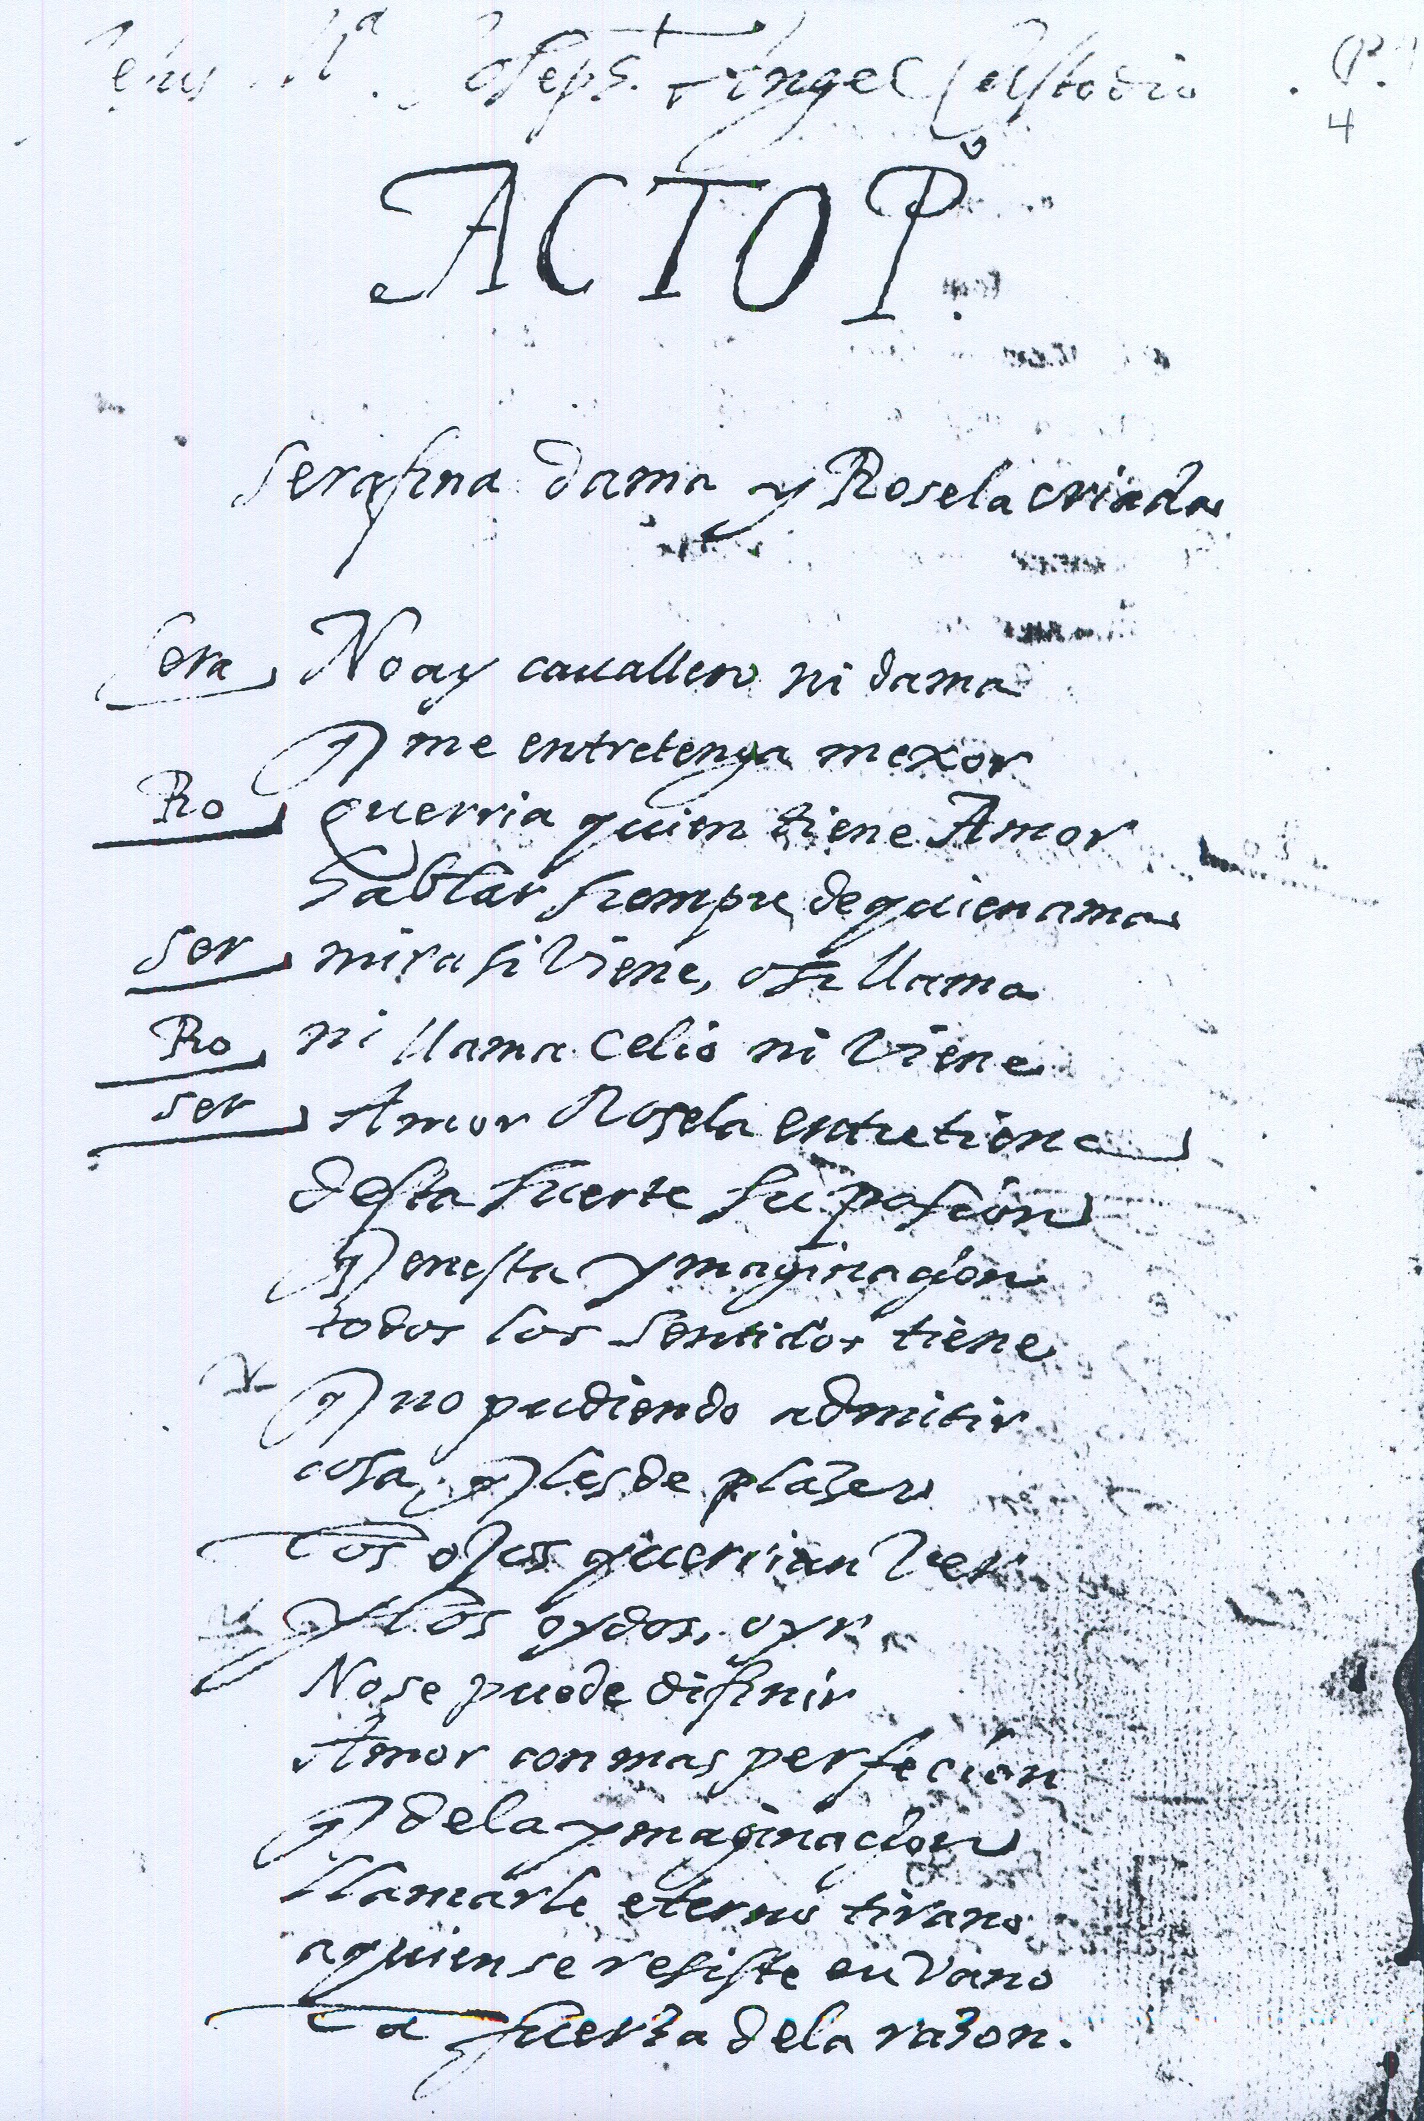 Jesus Mª Joseph Angel Custodio . (P. 1
4
ACTO Pº.
Serafina dama y Rosela criada
Sera No ay cauallero ni dama
q me entretenga mexor
Ro querria quien tiene Amor
hablar siempre de quien ama
ser mira si Viene, o si llama
Ro ni llama Celio ni Viene
ser Amor Rosela entretiene
desta suerte su pasion
q en esta ymaginaçion
todos los sentidos tiene
q no pudiendo admitir
cosa, q les de plazer
los ojos querrian Ver
y los oydos, oyr
No se puede difinir
Amor con mas perfecion
q de la ymaginaçion
llamarle eterno tirano
a quien se resiste en Vano
la fuerza de la razon.